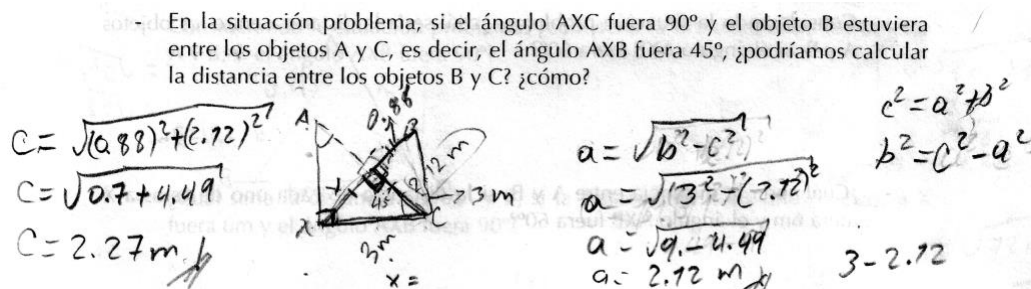 - En la situación problema, si el ángulo AXC fuera 90° y el objeto B estuviera
entre los objetos A y C, es decir, el ángulo AXB fuera 45°, ¿podríamos calcular
la distancia entre los objetos B y C? ¿cómo?
C = √(0.88)²+(2.12)²
C = √0.7 + 4.49
C = 2.27 m
A
0.88
B
2.12 m
45°
X
C
= 3 m
3 m
x =
a = √b² - c²
a = √(3)² - (2.12)²
a = √9 - 4.49
a = 2.12 m
c² = a² + b²
b² = c² - a²
3 - 2.12